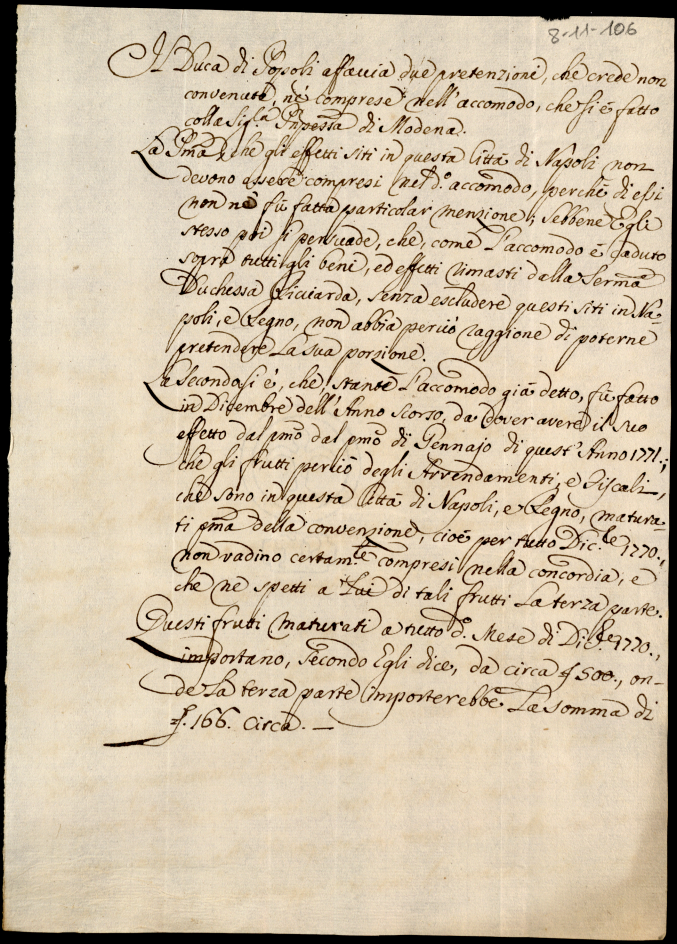 8-11-106
Il Duca di Popoli affaccia due pretenzioni, che crede non
convenute, nè comprese nell'accomodo, che si è fatto
colla Sig.ra Pnpessa di Modena.
La Pma, che gli effetti siti in questa Città di Napoli non
devono essere compresi nel d.o accomodo, perchè di essi
non ne fù fatta particolar menzione; sebbene Egli
stesso poi si persuade, che, come l'accomodo è caduto
sopra tutti gli beni, ed effetti rimasti dalla Serma
Duchessa Ricciarda, senza escludere questi siti in Na-
poli, e Regno, non abbia perciò raggione di poterne
pretendere la sua porzione.
La Seconda si è, che, stante l'accomodo già detto, fù fatto
in Dicembre dell'Anno scorso, da dover avere il suo
effetto dal pmo dal pmo di Gennajo di quest'Anno 1771.;
che gli frutti perciò degli Arrendamenti, e Fiscali,
che sono in questa Città di Napoli, e Regno, matura-
ti pma della convenzione, cioè per tutto Dic.bre 1770.,
non vadino certam.te compresi nella concordia, e
che ne spetti a Lui di tali frutti la terza parte.
Questi frutti maturati a tutto d.o Mese di Dic.bre 1770.,
importano, secondo Egli dice, da circa 500., on-
de la terza parte importerebbe la somma di
166. circa. —